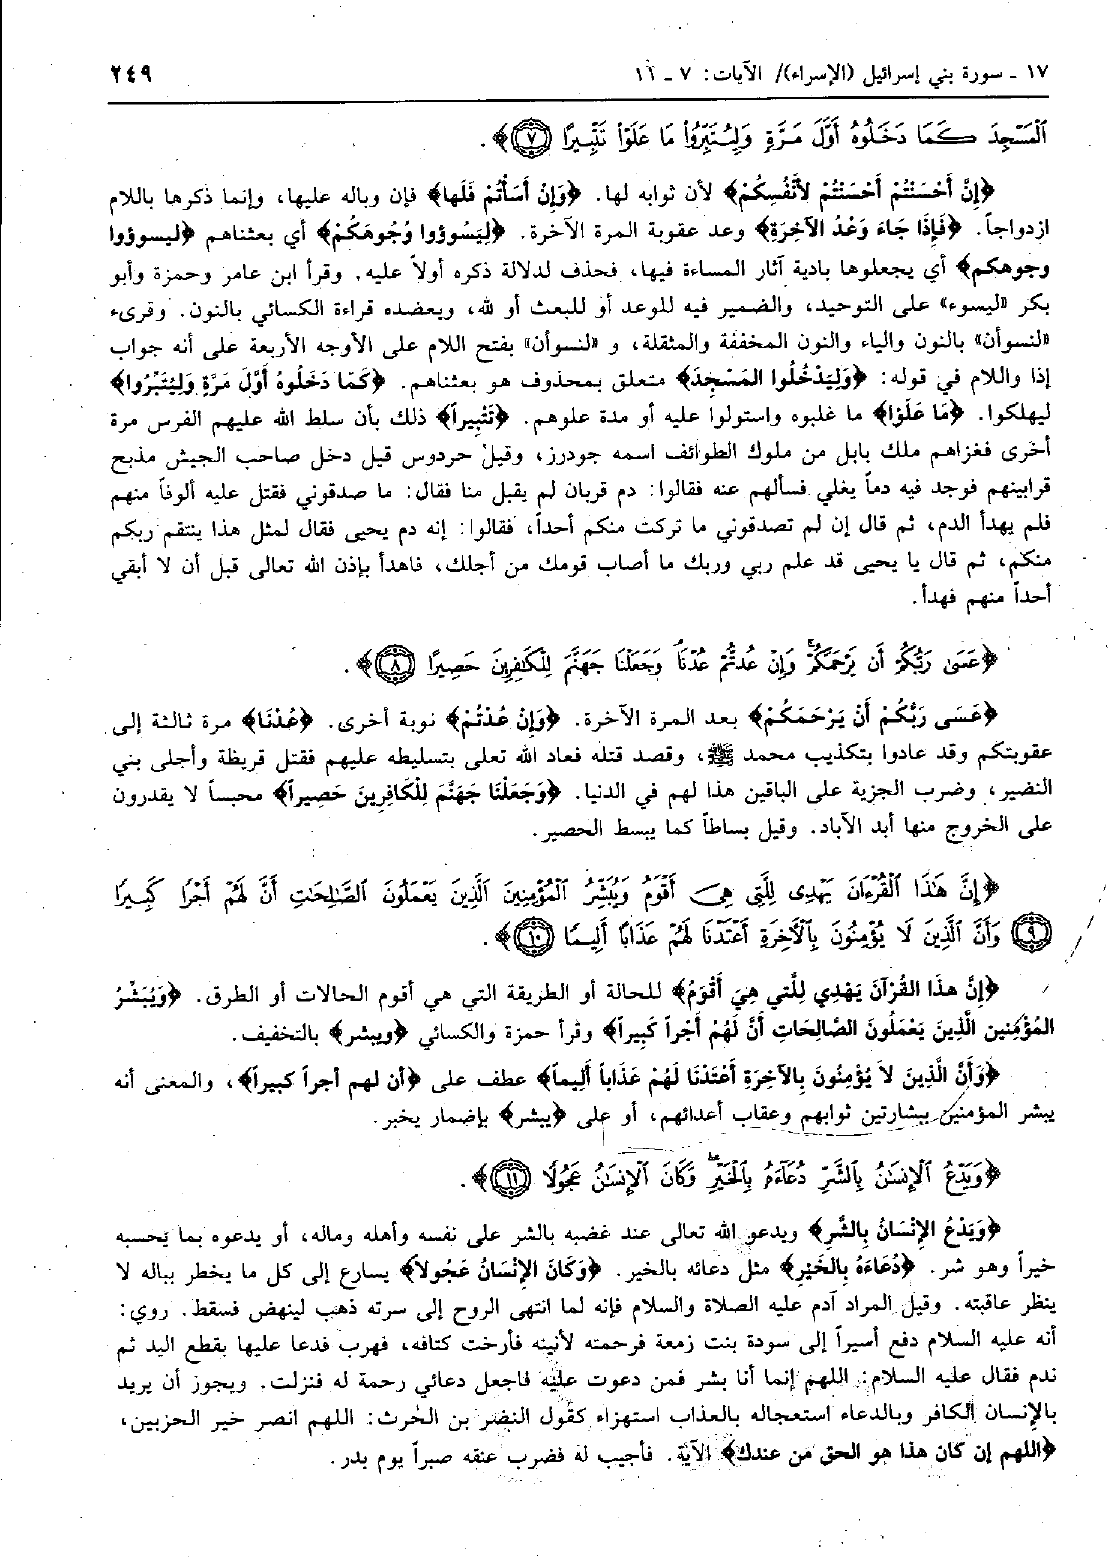 ١٧ ـ سورة بني إسرائيل (الإسراء)/ الآيات: ٧ ـ ١١
٢٤٩
ٱلْمَسْجِدَ كَمَا دَخَلُوهُ أَوَّلَ مَرَّةٍ وَلِيُتَبِّرُوا۟ مَا عَلَوْا۟ تَتْبِيرًا ﴿٧﴾﴾.
﴿إِنَّ أَحْسَنْتُمْ أَحْسَنْتُمْ لأَنْفُسِكُمْ﴾ لأن ثوابه لها. ﴿وَإِنْ أَسَأْتُمْ فَلَها﴾ فإن وباله عليها، وإنما ذكرها باللام
ازدواجاً. ﴿فَإِذَا جَاءَ وَعْدُ الآخِرَةِ﴾ وعد عقوبة المرة الآخرة. ﴿لِيَسُوؤُوا وُجُوهَكُمْ﴾ أي بعثناهم ﴿ليسوؤوا
وجوهكم﴾ أي يجعلوها بادية آثار المساءة فيها، فحذف لدلالة ذكره أولاً عليه. وقرأ ابن عامر وحمزة وأبو
بكر «ليسوء» على التوحيد، والضمير فيه للوعد أو للبعث أو لله، ويعضده قراءة الكسائي بالنون. وقرىء
«لنسوأن» بالنون والياء والنون المخففة والمثقلة، و «لنسوأن» بفتح اللام على الأوجه الأربعة على أنه جواب
إذا واللام في قوله: ﴿وَلِيَدْخُلُوا المَسْجِدَ﴾ متعلق بمحذوف هو بعثناهم. ﴿كَمَا دَخَلُوهُ أَوَّلَ مَرَّةٍ وَلِيُتَبِّرُوا﴾
ليهلكوا. ﴿مَا عَلَوْا﴾ ما غلبوه واستولوا عليه أو مدة علوهم. ﴿تَتْبِيراً﴾ ذلك بأن سلط الله عليهم الفرس مرة
أخرى فغزاهم ملك بابل من ملوك الطوائف اسمه جودرز، وقيل حردوس قيل دخل صاحب الجيش مذبح
قرابينهم فوجد فيه دماً يغلي فسألهم عنه فقالوا: دم قربان لم يقبل منا فقال: ما صدقوني فقتل عليه ألوفاً منهم
فلم يهدأ الدم، ثم قال إن لم تصدقوني ما تركت منكم أحداً، فقالوا: إنه دم يحيى فقال لمثل هذا ينتقم ربكم
منكم، ثم قال يا يحيى قد علم ربي وربك ما أصاب قومك من أجلك، فاهدأ بإذن الله تعالى قبل أن لا أبقي
أحداً منهم فهدأ.
﴿عَسَىٰ رَبُّكُمْ أَن يَرْحَمَكُمْ ۚ وَإِنْ عُدتُّمْ عُدْنَا ۘ وَجَعَلْنَا جَهَنَّمَ لِلْكَٰفِرِينَ حَصِيرًا ﴿٨﴾﴾.
﴿عَسَى رَبُّكُمْ أَنْ يَرْحَمَكُمْ﴾ بعد المرة الآخرة. ﴿وَإِنْ عُدْتُمْ﴾ نوبة أخرى. ﴿عُدْنَا﴾ مرة ثالثة إلى
عقوبتكم وقد عادوا بتكذيب محمد ﷺ، وقصد قتله فعاد الله تعلى بتسليطه عليهم فقتل قريظة وأجلى بني
النضير، وضرب الجزية على الباقين هذا لهم في الدنيا. ﴿وَجَعَلْنَا جَهَنَّمَ لِلْكَافِرِينَ حَصِيراً﴾ محبساً لا يقدرون
على الخروج منها أبد الآباد. وقيل بساطاً كما يبسط الحصير.
﴿إِنَّ هَٰذَا ٱلْقُرْءَانَ يَهْدِى لِلَّتِى هِىَ أَقْوَمُ وَيُبَشِّرُ ٱلْمُؤْمِنِينَ ٱلَّذِينَ يَعْمَلُونَ ٱلصَّٰلِحَٰتِ أَنَّ لَهُمْ أَجْرًا كَبِيرًا
﴿٩﴾ وَأَنَّ ٱلَّذِينَ لَا يُؤْمِنُونَ بِٱلْآخِرَةِ أَعْتَدْنَا لَهُمْ عَذَابًا أَلِيمًا ﴿١٠﴾﴾.
﴿إِنَّ هذَا القُرْآنَ يَهْدِي لِلَّتي هِيَ أَقْوَمُ﴾ للحالة أو الطريقة التي هي أقوم الحالات أو الطرق. ﴿وَيُبَشِّرُ
المُؤْمِنِين الَّذِينَ يَعْمَلُونَ الصَّالِحَاتِ أَنَّ لَهُمْ أَجْراً كَبِيراً﴾ وقرأ حمزة والكسائي ﴿ويبشر﴾ بالتخفيف.
﴿وَأَنَّ الَّذِينَ لاَ يُؤْمِنُونَ بِالآخِرَةِ أَعْتَدْنَا لَهُمْ عَذَاباً أَلِيماً﴾ عطف على ﴿أن لهم أجراً كبيراً﴾، والمعنى أنه
يبشر المؤمنين ببشارتين ثوابهم وعقاب أعدائهم، أو على ﴿يبشر﴾ بإضمار يخبر.
﴿وَيَدْعُ ٱلْإِنسَٰنُ بِٱلشَّرِّ دُعَآءَهُۥ بِٱلْخَيْرِ ۖ وَكَانَ ٱلْإِنسَٰنُ عَجُولًا ﴿١١﴾﴾.
﴿وَيَدْعُ الإِنْسَانُ بِالشَّرِ﴾ ويدعو الله تعالى عند غضبه بالشر على نفسه وأهله وماله، أو يدعوه بما يحسبه
خيراً وهو شر. ﴿دُعَاءَهُ بِالخَيْرِ﴾ مثل دعائه بالخير. ﴿وَكَانَ الإِنْسَانُ عَجُولاً﴾ يسارع إلى كل ما يخطر بباله لا
ينظر عاقبته. وقيل المراد آدم عليه الصلاة والسلام فإنه لما انتهى الروح إلى سرته ذهب لينهض فسقط. روي:
أنه عليه السلام دفع أسيراً إلى سودة بنت زمعة فرحمته لأنينه فأرخت كتافه، فهرب فدعا عليها بقطع اليد ثم
ندم فقال عليه السلام: اللهم إنما أنا بشر فمن دعوت عليه فاجعل دعائي رحمة له فنزلت. ويجوز أن يريد
بالإنسان الكافر وبالدعاء استعجاله بالعذاب استهزاء كقول النضر بن الحرث: اللهم انصر خير الحزبين،
﴿اللهم إن كان هذا هو الحق من عندك﴾ الآية. فأجيب له فضرب عنقه صبراً يوم بدر.